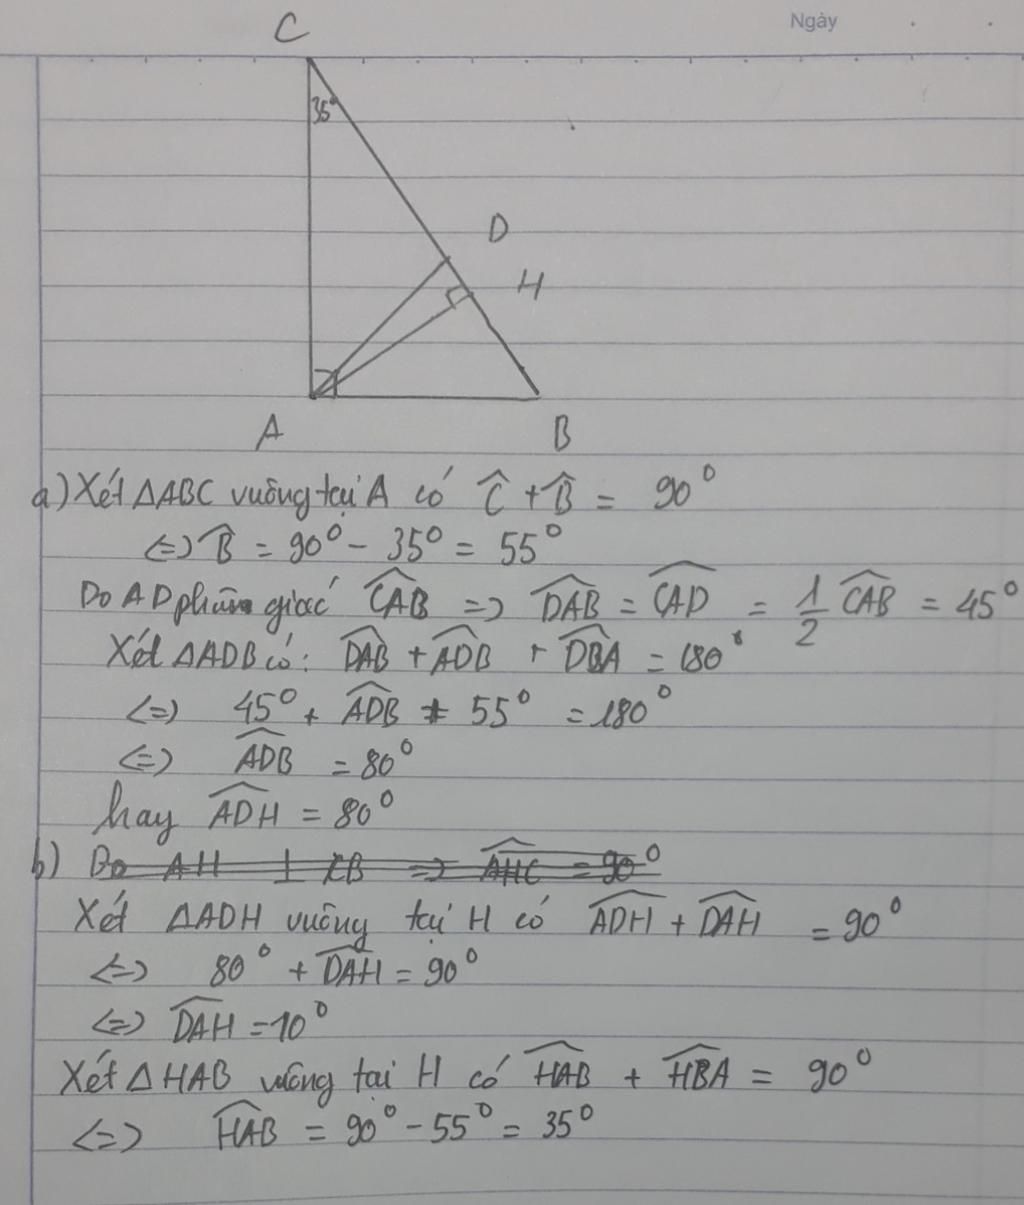 Ngày
C
35°
D
H
A
B
a) Xét ΔABC vuông tại A có Ĉ + B̂ = 90°
<=> B̂ = 90° - 35° = 55°
Do AD phân giác \widehat{CAB} => \widehat{DAB} = \widehat{CAD} = 1/2 \widehat{CAB} = 45°
Xét ΔADB có: \widehat{DAB} + \widehat{ADB} + \widehat{DBA} = 180°
<=> 45° + \widehat{ADB} + 55° = 180°
<=> \widehat{ADB} = 80°
hay \widehat{ADH} = 80°
b) Do AH ⊥ CB => \widehat{AHC} = 90°
Xét ΔADH vuông tại H có \widehat{ADH} + \widehat{DAH} = 90°
<=> 80° + \widehat{DAH} = 90°
<=> \widehat{DAH} = 10°
Xét ΔHAB vuông tại H có \widehat{HAB} + \widehat{HBA} = 90°
<=> \widehat{HAB} = 90° - 55° = 35°